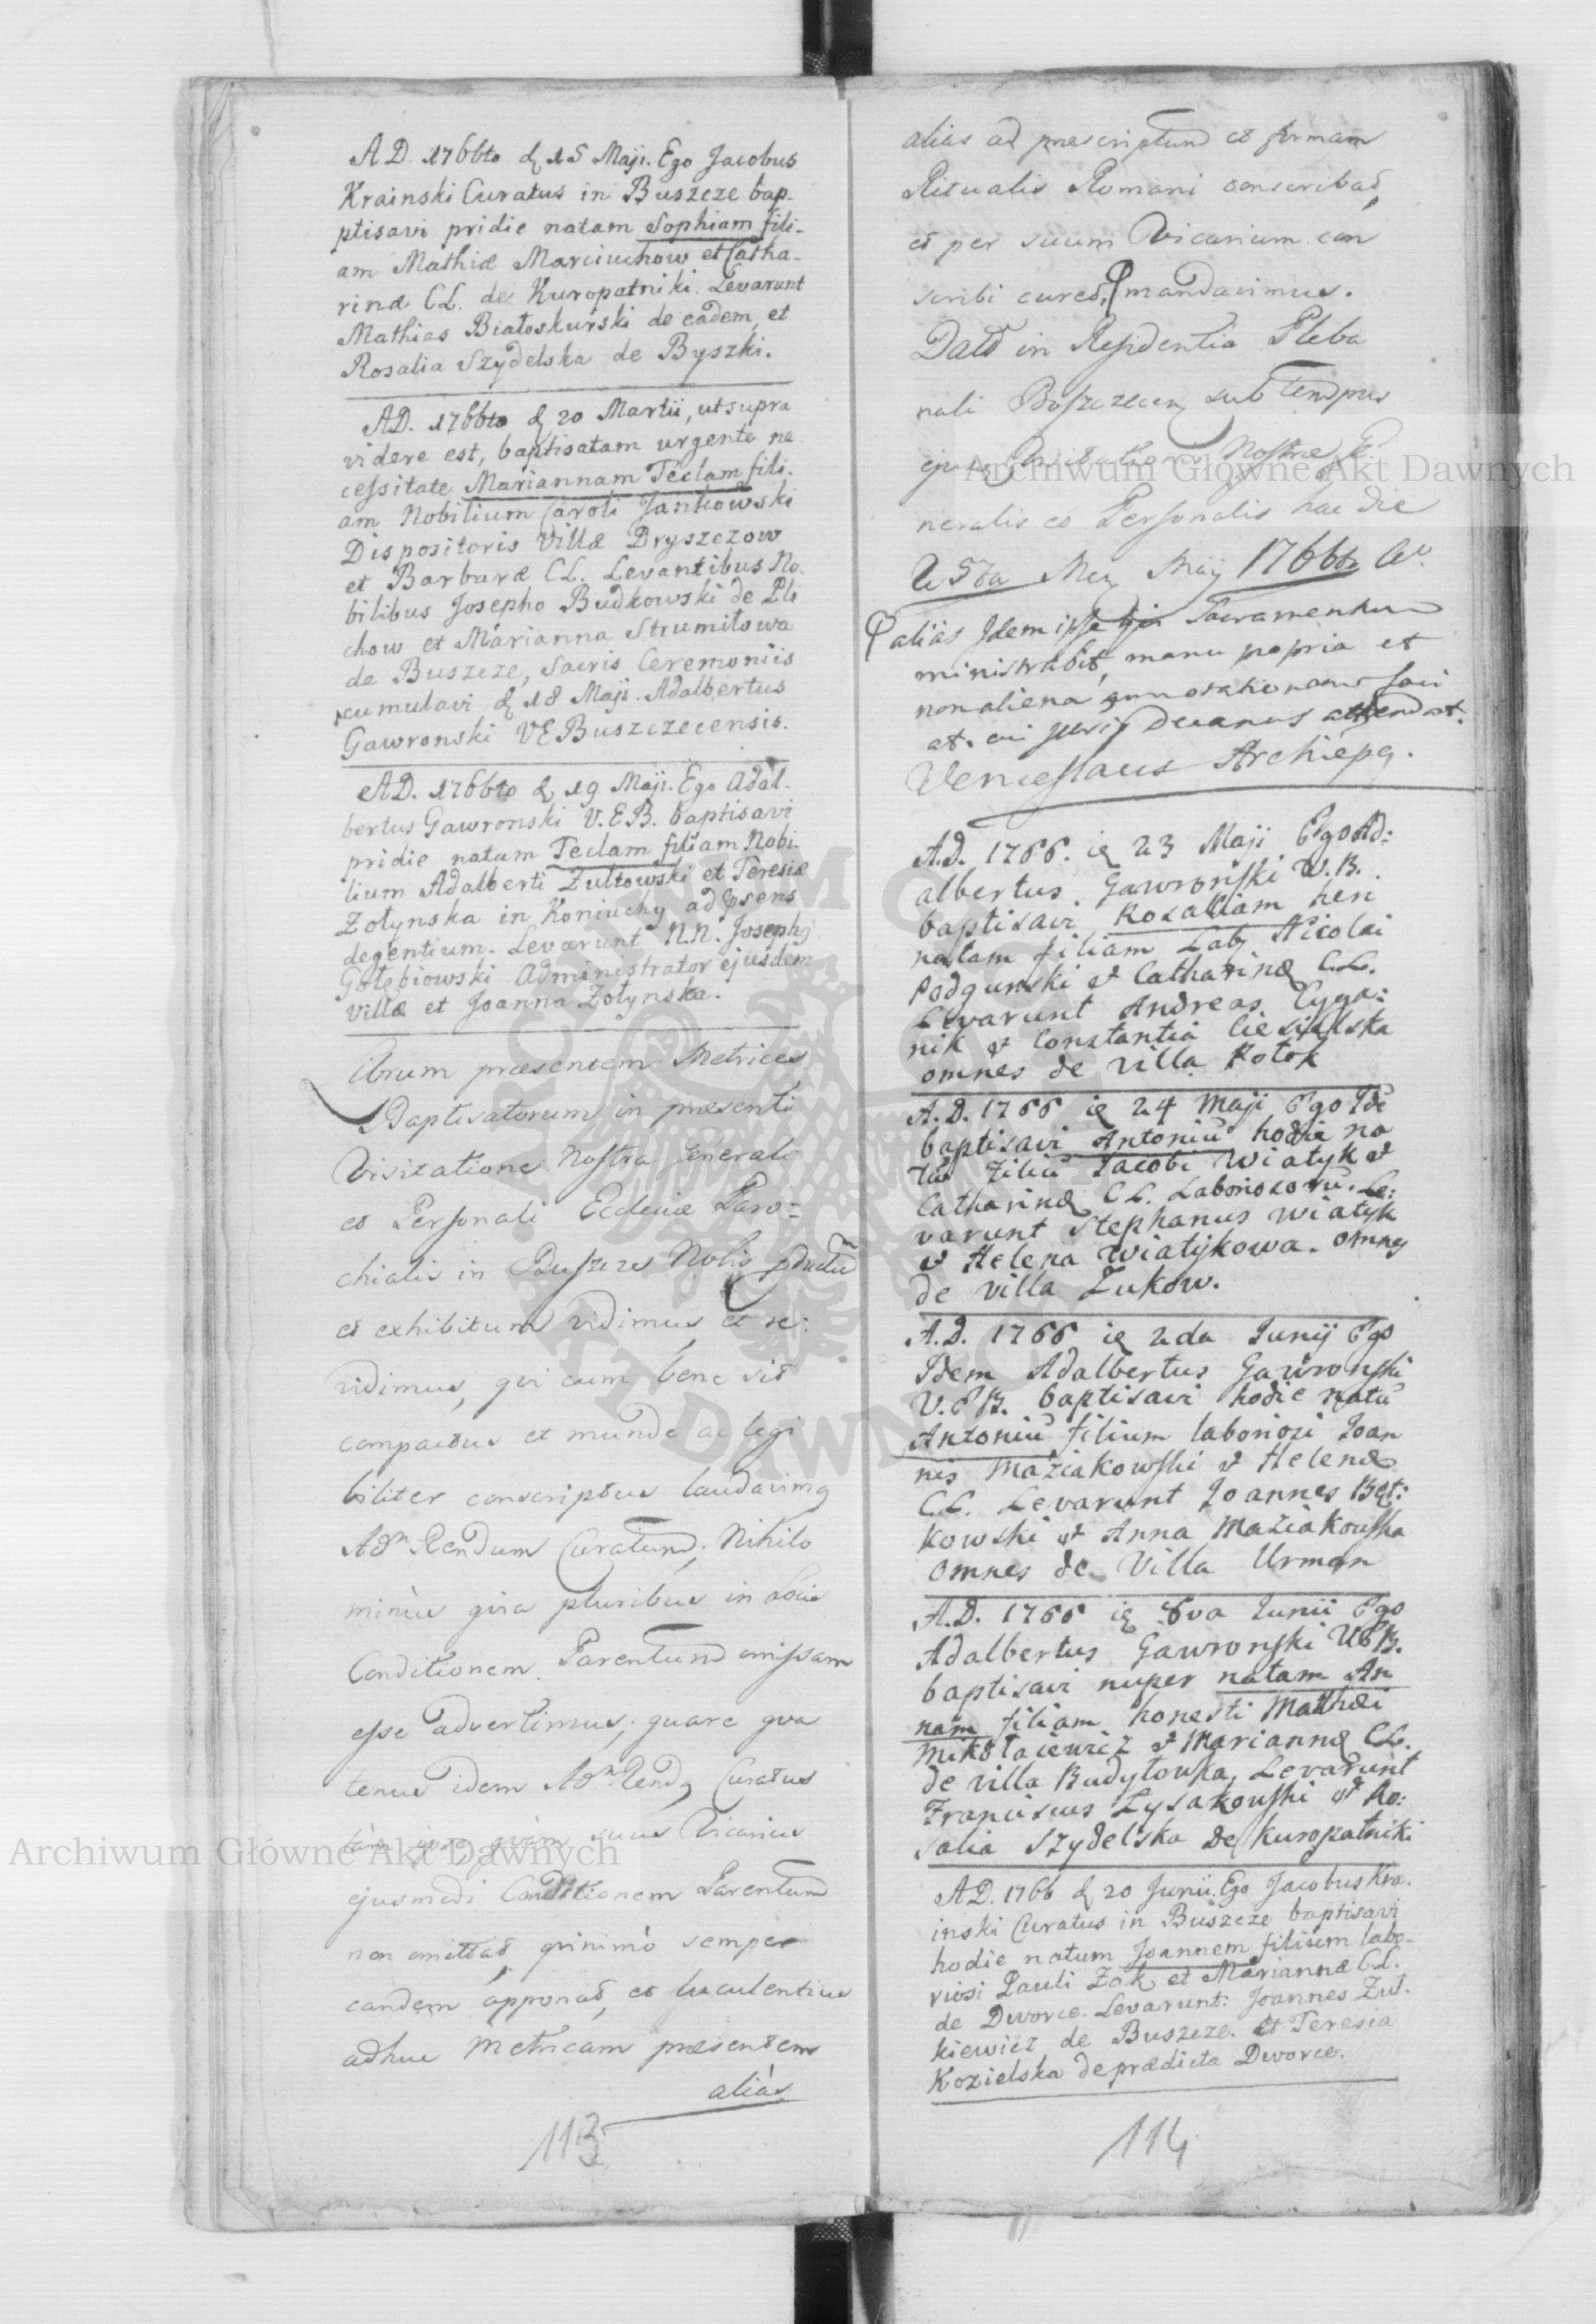 A D. 1766to d. 15 Maji. Ego Jacobus
Krainski Curatus in Buszcze bap-
ptisavi pridie natam Sophiam fili-
am Mathiæ Marciuchow et Catha-
rinæ CL. de Kuropatniki. Levarunt
Mathias Białoskurski de eadem, et
Rosalia Szydelska de Byszki.
AD. 1766to d. 20 Martii, ut supra
videre est, baptisatam urgente ne
cessitate Mariannam Teclam fili-
am Nobilium Caroli Jankowski
Dispositoris Villæ Dryszczow
et Barbaræ CL. Levantibus No-
bilibus Josepho Budkowski de Pli
chow et Marianna Strumiłowa
de Buszcze, Sacris Ceremoniis
cumulavi d. 18 Maji. Adalbertus
Gawronski VE Buszczecensis.
AD. 1766to d. 19 Maji. Ego Adal-
bertus Gawronski V.E.B. baptisavi
pridie natam Teclam filiam Nobi-
lium Adalberti Zułtowski et Teresiæ
Zołynska in Koniuchy ad psens
degentium. Levarunt N.N. Josephg
Gołębiowski Administrator ejusdem
villæ et Joanna Zołynska.
Librum præsentem Metrices
Baptisatorum in præsenti
Visitatione Nostra Generali
et Personali Ecclesiæ Paro=
chialis in Buszcze Nobis pductum
et exhibitum vidimus, et re:
vidimus, qvi cum bene sit
compactus et munde ac legi
biliter conscriptus laudavimg
Adm Rendum Curatum; Nihilo
minùs qvia pluribus in locis
Conditionem Parentum omissam
esse advertimus, quare qva
tenus idem Adm Rendg Curatus
tàm ipse, qvàm suus Vicarius
ejusmodi Conditionem Parentum
non omittat, qvinimò semper
eandem apponat, et luculentius
adhuc Metricam præsentem
alias
113
alias ad præscriptum et formam
Ritualis Romani conscribat,
et per suum Vicarium con
scribi curet, mandavimus.
Datt in Residentia Pleba
nali Buszczecen sub tempus
ejusdem Visitationis Nostræ Ge
neralis et Personalis hac die
25ta Mens Maij 1766to Ao.
alias Idem ipse qvi Sacramentum
ministrabit, manu propria et
non aliena annotationem faci
at. cui pariter Decanus attendat.
Venceslaus Archiepg.
A.D. 1766. ię 23 Maji Ego Ad:
albertus Gawronski V.B.
baptisavi Rosaliam heri
natam filiam Labg Nicolai
Podgurski et Catharinæ C.L.
Levarunt Andreas Cyga:
nik et Constantia Ciesielska
omnes de villa Potok
A.D. 1766 ię 24 Maji Ego Idē
baptisavi Antoniū hodie na
tū Filiū Iacobi Wiatyk et
Catharinæ C L. Laboriosorū. Le:
varunt Stephanus Wiatyk
et Helena Wiatykowa. omnes
de villa Zukow.
A.D. 1766 ię 2da Iunij Ego
Idem Adalbertus Gawronski
V.E B. baptisavi hodie natū
Antoniū filium laboriosi Ioan
nis Maziakowski et Helenæ
C L. Levarunt Ioannes Bąt:
kowski et Anna Maziakowska
omnes de Villa Urman
A.D. 1766 ię 8va Iunii Ego
Adalbertus Gawronski VEB.
baptisavi nuper natam An
nam filiam honesti Mathæi
Mikołaiewicz et Mariannæ C L.
de villa Budyłowka, Levarunt
Franciscus Łysakowski et Ro:
salia Szydelska de Kuropatniki
A D. 1766 d. 20 Junii. Ego Jacobus Kra-
inski Curatus in Buszcze baptisavi
hodie natum Joannem filium labo-
riosi Pauli Zak et Mariannæ CL.
de Dworce. Levarunt: Joannes Zul-
kiewicz de Buszcze. et Teresia
Kozielska de prædicta Dworce.
114
Archiwum Główne Akt Dawnych
Archiwum Główne Akt Dawnych